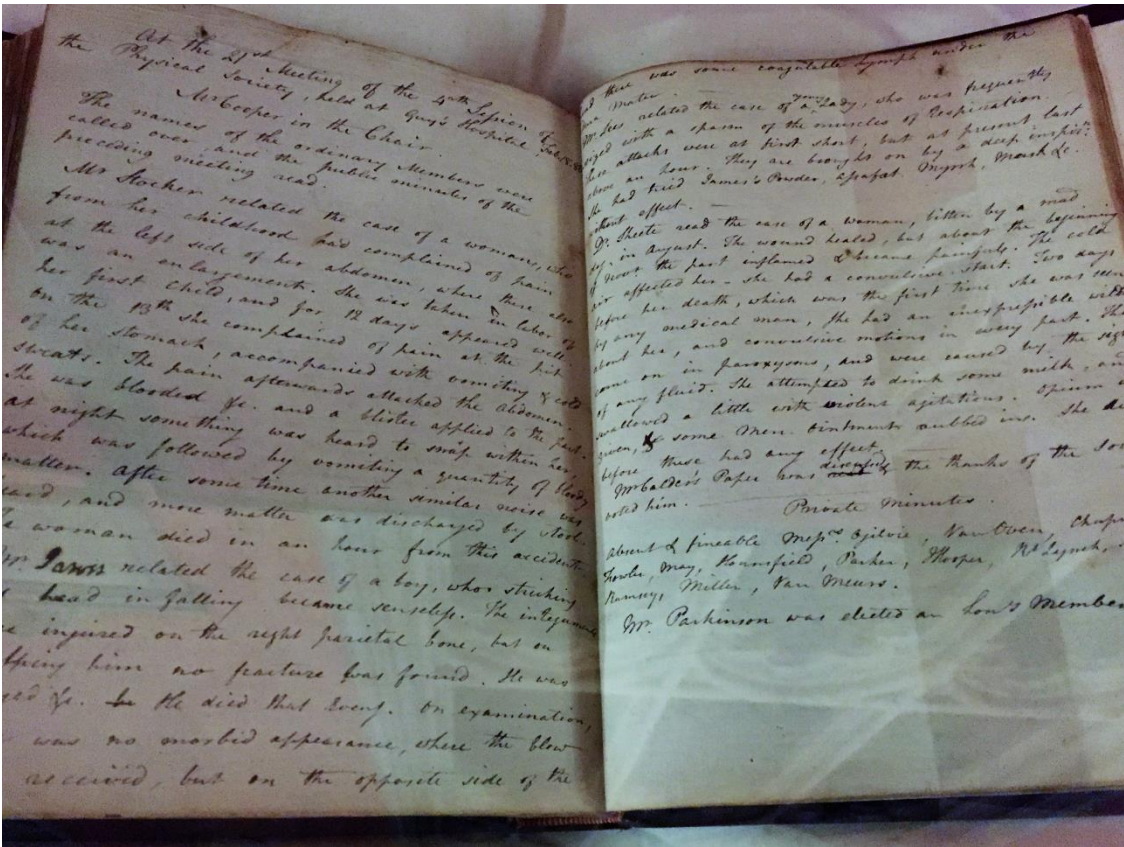 At the 21st Meeting of the 4th Session of
the Physical Society, held at Guy's Hospital
Mr Cooper in the Chair.
The names of the ordinary Members were
called over and the public minutes of the
preceding meeting read.
Mr Stocker related the case of a woman, who
from her childhood had complained of pain
at the left side of her abdomen, where there also
was an enlargement. She was taken in labor of
her first child, and for 12 days appeared well
on the 13th she complained of pain at the pit
of her stomach, accompanied with vomiting & cold
sweats. The pain afterwards attacked the abdomen.
She was blooded &c. and a blister applied to the part.
at night something was heard to snap within her,
which was followed by vomiting a quantity of bloody
matter. After some time another similar noise was
heard, and more matter was discharged by stool.
woman died in an hour from this accident.
related the case of a boy, who striking
head in falling became senseless. The integuments
injured on the right parietal bone, but on
him no fracture was found. He was
&c. he died that Eveng. On examination,
was no morbid appearance, where the blow
received, but on the opposite side of the
there was some coagulable lymph under the
mater.
related the case of a young Lady, who was frequently
with a spasm of the muscles of Respiration.
these attacks were at first short, but at present last
above an hour. They are brought on by a deep inspirn.
She had tried James's Powder, Myrrh, Musk &c.
without effect. —
Dr. Skeete read the case of a woman, bitten by a mad
dog, in August. The wound healed, but about the beginning
of Novr the part inflamed & became painful. The cold
air affected her — she had a convulsive start. Two days
before her death, which was the first time she was seen
by any medical man, she had an inexpressible
about her, and convulsive motions in every part. The
came on in paroxysms, and were caused by the sight
of any fluid. She attempted to drink some milk, and
swallowed a little with violent agitations. Opium
given, & some Mer. Ointment rubbed ins. She
before these had any effect.
Mr Calder's Paper was & the thanks of the
voted him. —
Private Minutes.
absent & fineable Messrs. Ogilvie, Van Oven,
Fowler, May, Hounsfield, Parker, Lynch,
Ramsey, Miller, Van Meurs.
Mr. Parkinson was elected an Hon'y Member